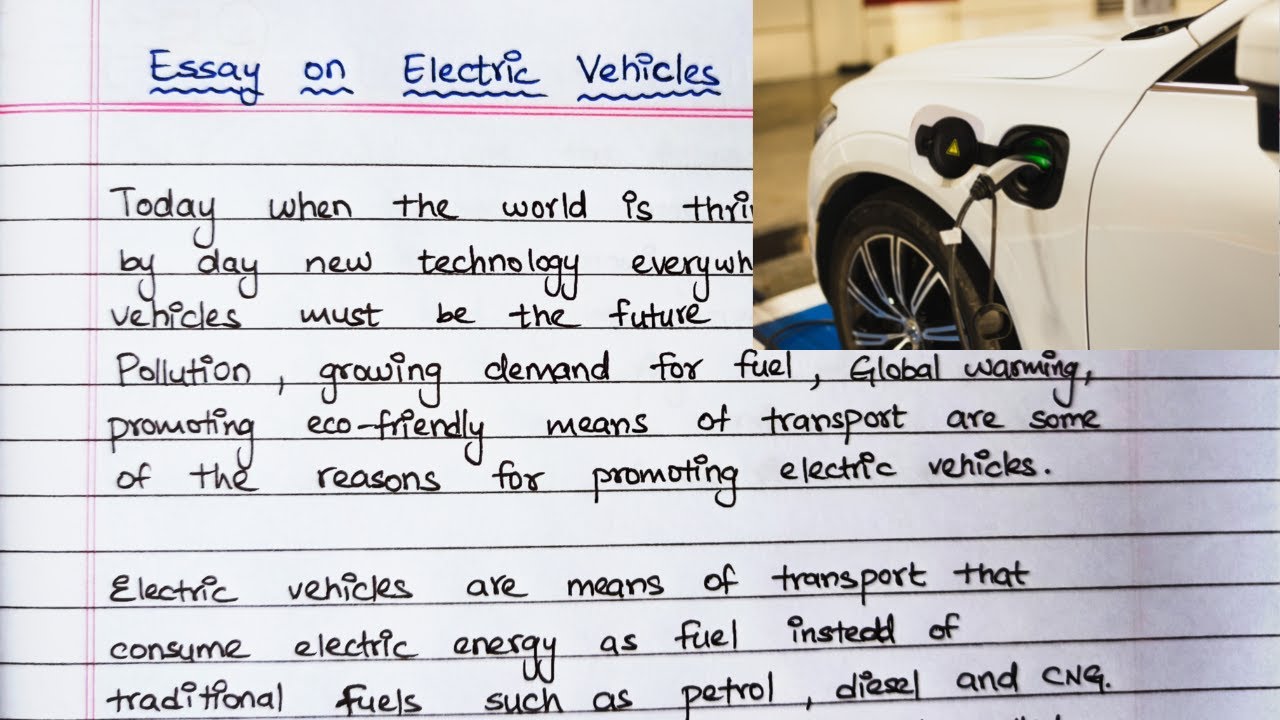 Essay on Electric Vehicles
Today when the world is
by day new technology
vehicles must be the future
Pollution, growing demand for fuel, Global warming,
promoting eco-friendly means of transport are some
of the reasons for promoting electric vehicles.
Electric vehicles are means of transport that
consume electric energy as fuel instead of
traditional fuels such as petrol, diesel and CNG.